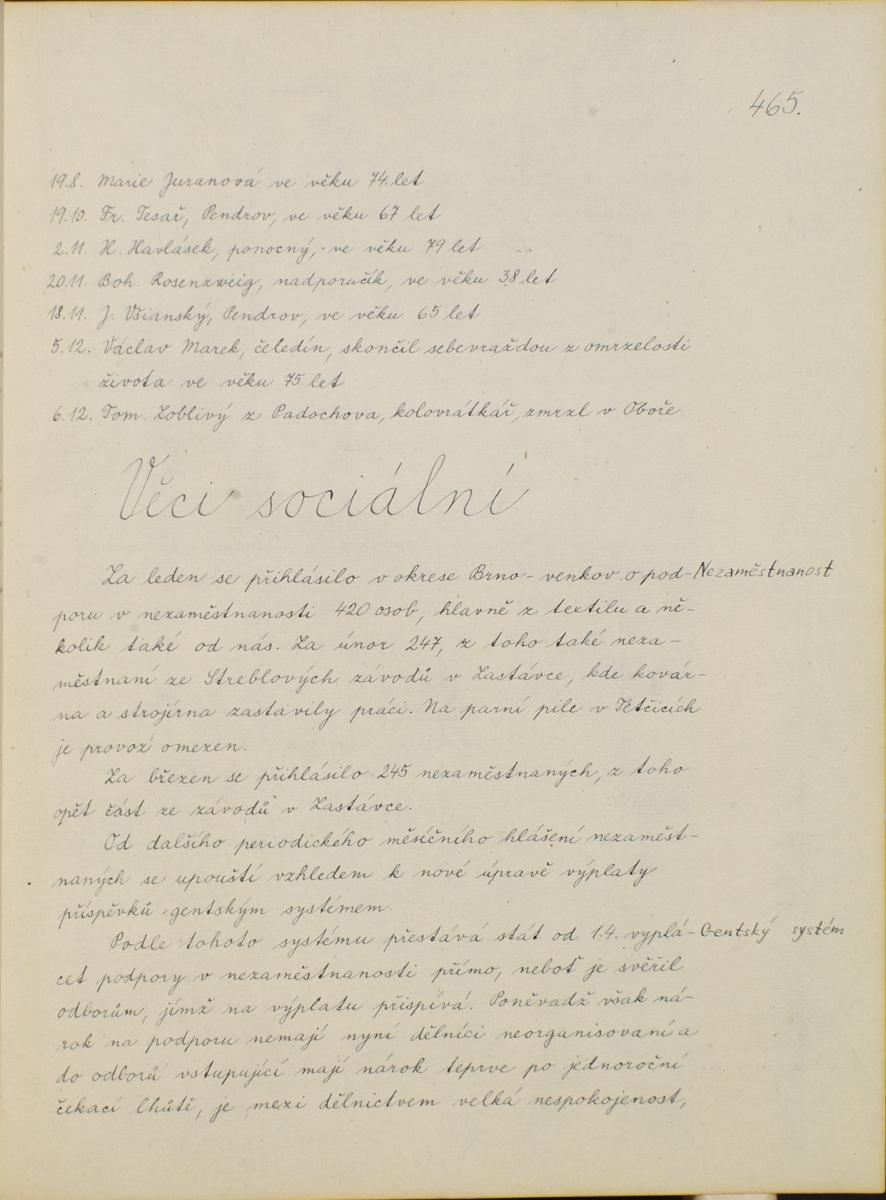 465.
19.8. Marie Juranová ve věku 74 let
19.10. Fr. Tesař, Pendrov, ve věku 67 let
2.11. H. Havlásek, ponocný, ve věku 79 let
20.11. Boh. Rosenzweig, nadporučík, ve věku 38 let
18.11. J. Všianský, Pendrov, ve věku 65 let
5.12. Václav Marek, čeledín, skončil sebevraždou z omrzelosti
života ve věku 75 let
6.12. Tom. Zoblivý z Padochova, kolovrátkář, zmrzl v Oboře
Věci sociální
Za leden se přihlásilo v okrese Brno-venkov o pod- Nezaměstnanost
poru v nezaměstnanosti 420 osob, hlavně z textilu a ně-
kolik také od nás. Za únor 247, z toho také neza-
městnaní ze Streblových závodů v Zastávce, kde kovár-
na a strojírna zastavily práci. Na parní pile v Tetčicích
je provoz omezen.
Za březen se přihlásilo 245 nezaměstnaných, z toho
opět část ze závodů v Zastávce.
Od dalšího periodického měsíčního hlášení nezaměst-
naných se upouští vzhledem k nové úpravě výplaty
příspěvků gentským systémem.
Podle tohoto systému přestává stát od 1.4. vyplá- Gentský systém
cet podpory v nezaměstnanosti přímo, neboť je svěřil
odborům, jímž na výplatu přispívá. Poněvadž však ná-
rok na podporu nemají nyní dělníci neorganisovaní a
do odborů vstupující mají nárok teprve po jednoroční
čekací lhůtě, je mezi dělnictvem velká nespokojenost,